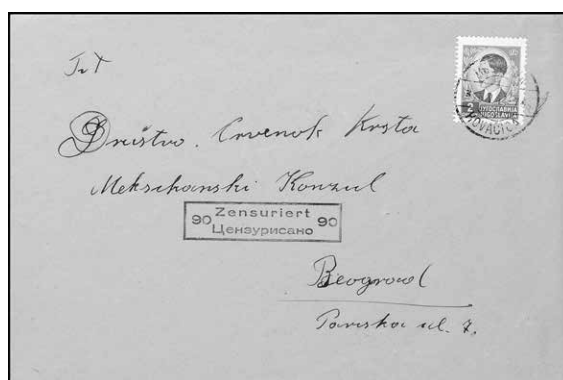 T. T
Društvo. Crvenok Krsta
Meksikanski Konzul
90 Zensuriert 90
Цензурисано
Beograd
Pariska ul. 7.
2
ЈУГОСЛАВИЈА
JUGOSLAVI